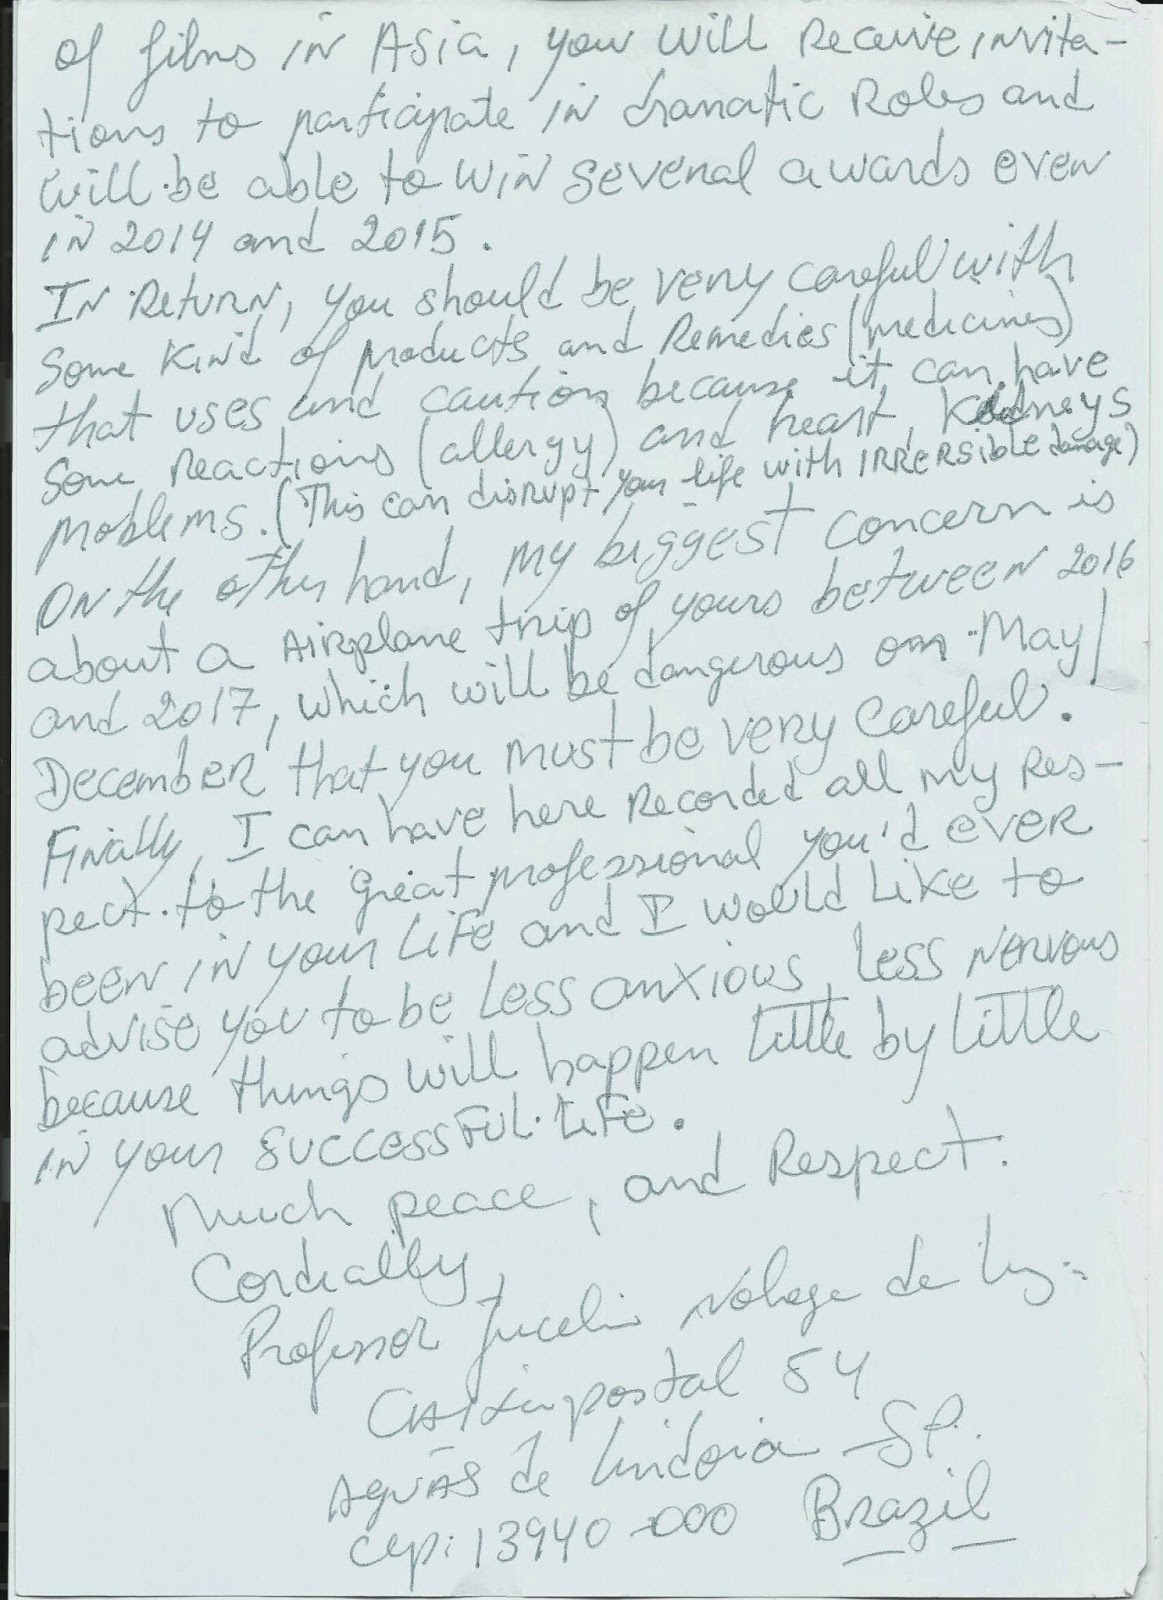 of films in Asia, you will receive invita-
tions to participate in dramatic Roles and
will be able to win several awards even
in 2014 and 2015.
In Return, you should be very careful with
Some Kind of products and Remedies (medicines)
that uses and caution because it can have
Some Reactions (allergy) and heart, Kedneys
problems. (This can disrupt your life with IRRERSible damage)
On the other hand, my biggest concern is
about a Airplane trip of yours between 2016
and 2017, which will be dangerous on May/
December that you must be very careful.
Finally, I can have here Recorded all my Res-
pect to the great professional you'd ever
been in your Life and I would like to
advise you to be less anxious, less nervous
because things will happen little by little
in your successful life.
Much peace, and Respect.
Cordially,
Professor Jucelino Nobrega da Luz -
Caixa postal 54
Aguas de Lindoia - SP.
Cep: 13940-000 Brazil